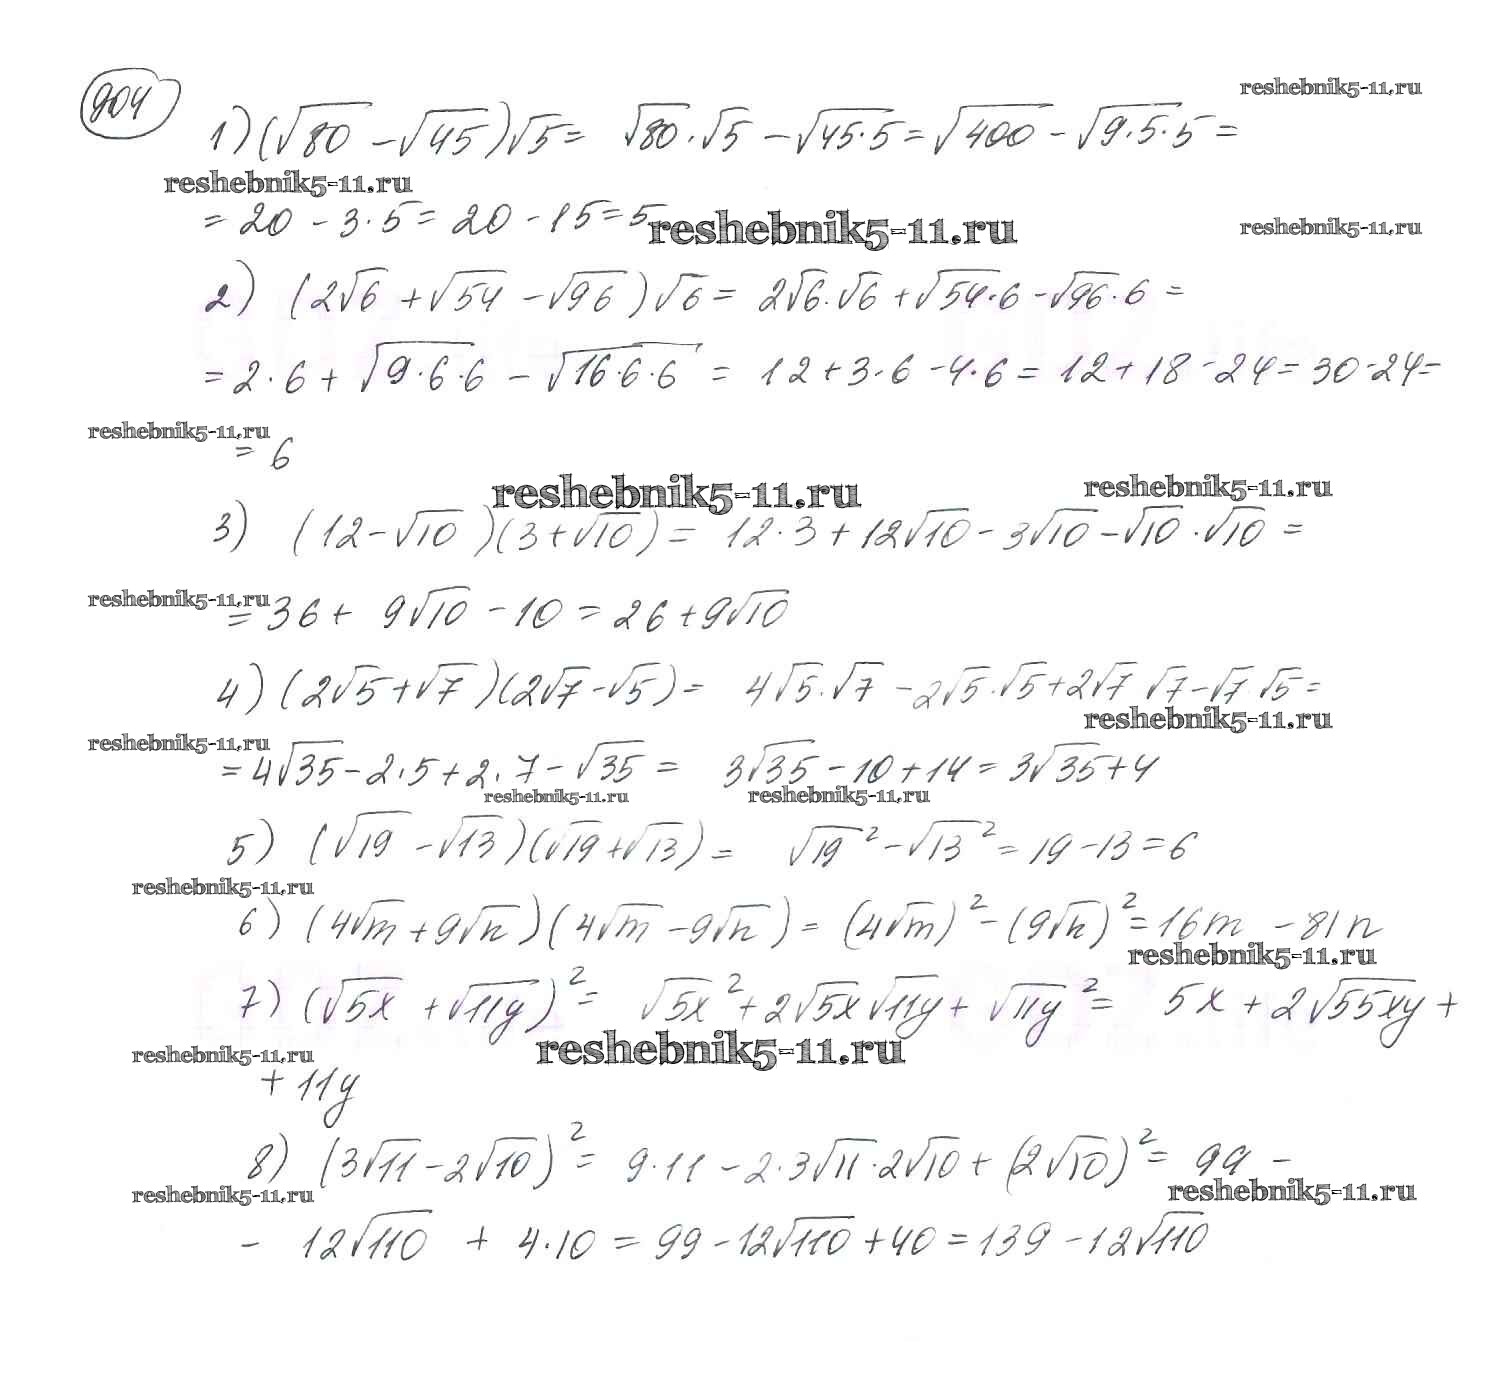 904
reshebnik5-11.ru
1) (√80 - √45)√5 = √80·√5 - √45·5 = √400 - √9·5·5 =
reshebnik5-11.ru
= 20 - 3·5 = 20 - 15 = 5
reshebnik5-11.ru
reshebnik5-11.ru
2) (2√6 + √54 - √96)√6 = 2√6·√6 + √54·6 - √96·6 =
= 2·6 + √9·6·6 - √16·6·6 = 12 + 3·6 - 4·6 = 12 + 18 - 24 = 30 - 24 =
reshebnik5-11.ru
= 6
reshebnik5-11.ru
reshebnik5-11.ru
3) (12 - √10)(3 + √10) = 12·3 + 12√10 - 3√10 - √10·√10 =
reshebnik5-11.ru
= 36 + 9√10 - 10 = 26 + 9√10
4) (2√5 + √7)(2√7 - √5) = 4√5·√7 - 2√5·√5 + 2√7 √7 - √7·√5 =
reshebnik5-11.ru
reshebnik5-11.ru
= 4√35 - 2·5 + 2·7 - √35 = 3√35 - 10 + 14 = 3√35 + 4
reshebnik5-11.ru
reshebnik5-11.ru
5) (√19 - √13)(√19 + √13) = √19² - √13² = 19 - 13 = 6
reshebnik5-11.ru
6) (4√m + 9√n)(4√m - 9√n) = (4√m)² - (9√n)² = 16m - 81n
reshebnik5-11.ru
7) (√5x + √11y)² = √5x² + 2√5x√11y + √11y² = 5x + 2√55xy +
reshebnik5-11.ru
reshebnik5-11.ru
+ 11y
8) (3√11 - 2√10)² = 9·11 - 2·3√11·2√10 + (2√10)² = 99 -
reshebnik5-11.ru
reshebnik5-11.ru
- 12√110 + 4·10 = 99 - 12√110 + 40 = 139 - 12√110